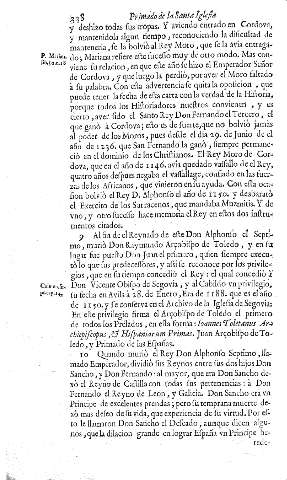 338 Primado de la Santa Iglesia
y deshizo todas sus tropas. Y aviendo entrado en Cordova,
y mantenidola algun tiempo, reconociendo la dificultad de
mantenerla, se la bolviò al Rey Moro, que se la avia entrega-
do, Mariana refiere este sucesso muy de otro modo. Mas con-
viene su relacion, en que este año se hizo el Emperador Señor
de Cordova, y que luego la perdiò, por aver el Moro faltado
à su palabra. Con esta advertencia se quita la oposicion, que
puede tener la fecha de esta carta con la verdad de la Historia,
porque todos los Historiadores nuestros convienen, y es
cierto, aver sido el Santo Rey Don Fernando el Tercero, el
que ganò à Cordova; esto es de suerte, que no bolviò jamàs
al poder de los Moros, pues desde el dia 29. de Junio de el
año de 1236. que San Fernando la ganò, siempre permane-
ciò en el dominio de los Christianos. El Rey Moro de Cor-
dova, que en el año de 1146. avia quedado vasallo de el Rey,
quatro años despues negaba el vasallage, confiado en las fuer-
zas de los Africanos, que vinieron en su ayuda. Con esta oca-
sion bolviò el Rey D. Alphonso el año de 1150. y desbaratò
el Exercito de los Sarracenos, que mandaba Muzmitis. Y de
vno, y otro sucesso hace memoria el Rey en estos dos instru-
mentos citados.
9 Al fin de el Reynado de este Don Alphonso el Septi-
mo, muriò Don Raymundo Arçobispo de Toledo, y en su
lugar fue puesto Don Juan el primero, quien siempre execu-
tò lo que sus predecessores, y assi se reconoce por los privile-
gios, que en su tiempo concediò el Rey: el qual concediò à
Don Vicente Obispo de Segovia, y al Cabildo vn privilegio,
su fecha en Avila à 28. de Enero, Era de 1188. que es el año
de 1150. y se conserva en el Archivo de la Iglesia de Segovia
En este privilegio firma el Arçobispo de Toledo el primero
de todos los Prelados, en esta forma: Ioannes Toletanus Ar-
chiepiscopus, & Hispaniarum Primas. Juan Arçobispo de To-
ledo, y Primado de las Españas.
10 Quando muriò el Rey Don Alphonso Septimo, lla-
mado Emperador, dividiò sus Reynos entre sus dos hijos Don
Sancho, y Don Fernando: al mayor, que era Don Sancho de-
xò el Reyno de Castilla con todas sus pertenencias: à Don
Fernando el Reyno de Leon, y Galicia. Don Sancho era vn
Principe de excelentes prendas; pero su temprana muerte de-
xò mas deseo de su vida, que experiencia de su virtud. Por es-
to le llamaron Don Sancho el Deseado, aunque dicen algu-
nos, que la dilacion grande en lograr España vn Principe he-
rede-